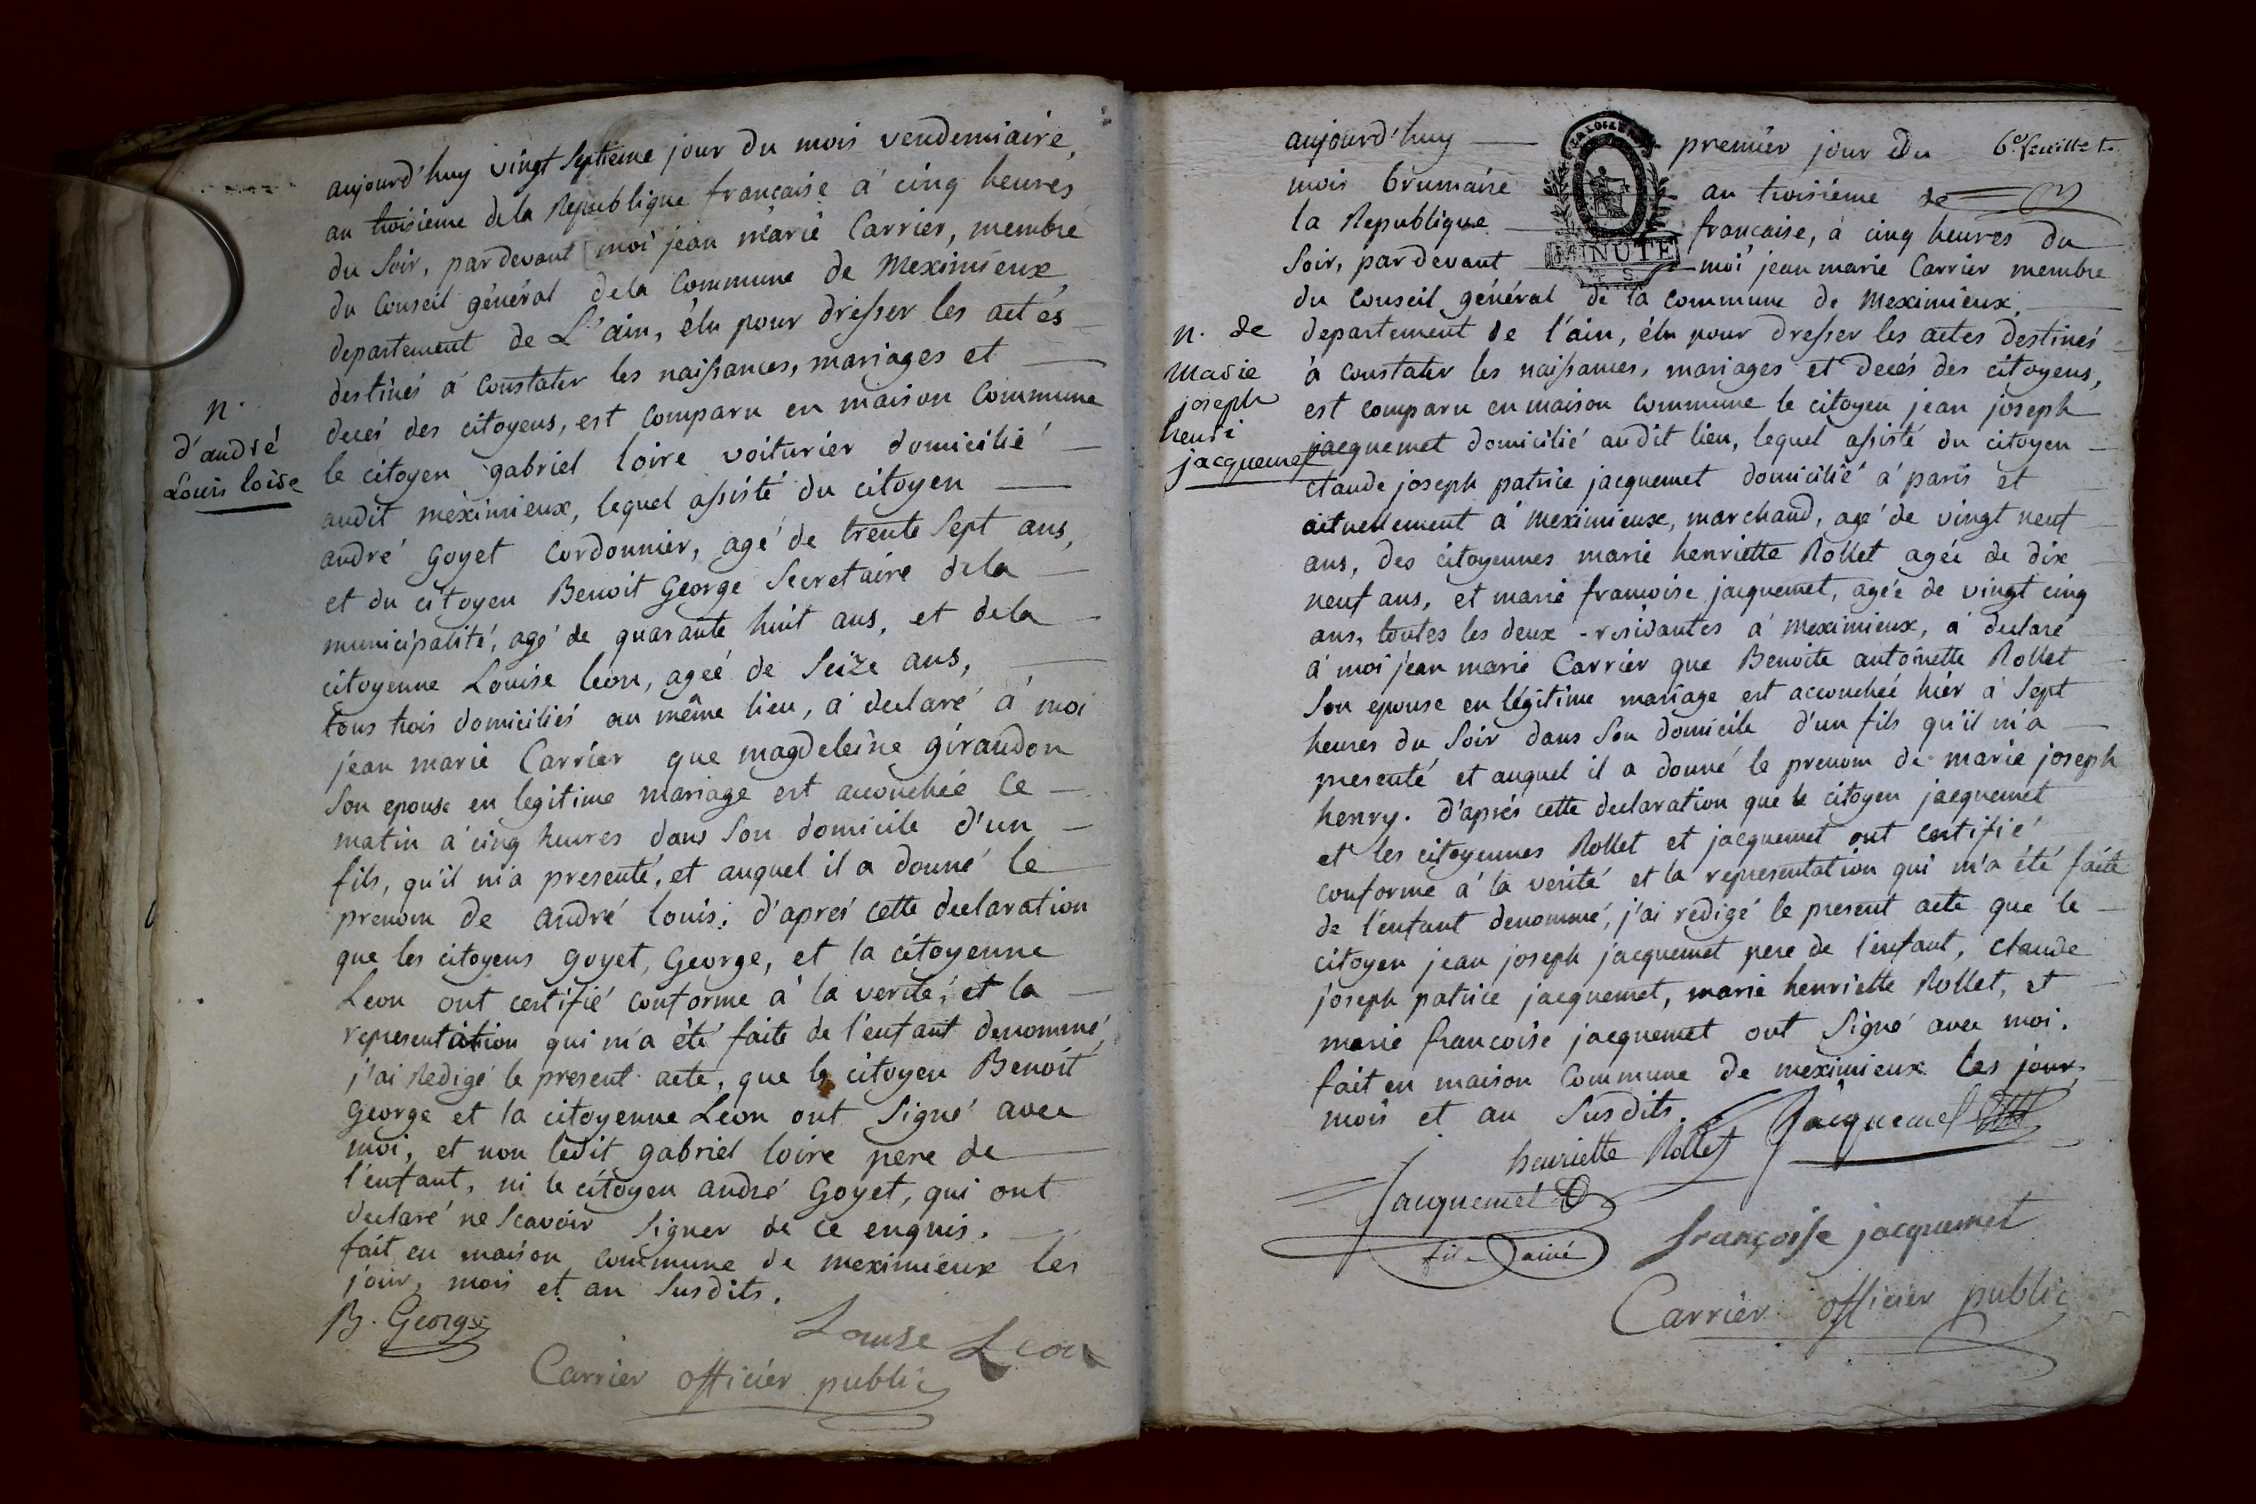 aujourd'huy vingt septieme jour du mois vendemiaire,
an troisieme de la Republique française à cinq heures
du soir, pardevant moi jean marie Carrier, membre
du Conseil général de la Commune de Meximieux,
departement de L'ain, élu pour dresser les actes
destinés à constater les naissances, mariages et
decés des citoyens, est comparu en maison Commune
le citoyen gabriel loire voiturier domicilié
audit meximieux, lequel assisté du citoyen
andré Goyet Cordonnier, agé de trente sept ans,
et du citoyen Benoit George Secretaire de la
municipalité, agé de quarante huit ans, et de la
citoyenne Louise leon, agée de seize ans,
tous trois domiciliés au même lieu, a declaré à moi
jean marie Carrier que magdeleine giraudon
son epouse en legitime mariage est accouchée ce
matin à cinq heures dans son domicile d'un
fils, qu'il m'a presenté, et auquel il a donné le
prenom de andré louis. d'aprés cette declaration
que les citoyens goyet, George, et la citoyenne
Leon ont certifié conforme à la verité, et la
representation qui m'a été faite de l'enfant denommé,
j'ai Redigé le present acte, que le citoyen Benoit
George et la citoyenne Leon ont signé avec
moi, et non ledit gabriel loire pere de
l'enfant, ni le citoyen andré Goyet, qui ont
declaré ne scavoir signer de ce enquis.
fait en maison commune de meximieux les
jour, mois et an susdits.
B. George
Louise Leon
Carrier officier public
n.
d'andré
Louis loire
6e feuillet.
aujourd'huy premier jour du
mois brumaire an troisieme de
la Republique française, à cinq heures du
MINUTE
soir, pardevant moi jean marie Carrier membre
du Conseil général de la commune de Meximieux,
departement de l'ain, élu pour dresser les actes destinés
à constater les naissances, mariages et decés des citoyens,
est comparu en maison commune le citoyen jean joseph
jacquemet domicilié audit lieu, lequel assisté du citoyen
claude joseph patrice jacquemet domicilié à paris et
actuellement à meximieux, marchand, agé de vingt neuf
ans, des citoyennes marie henriette Rollet agée de dix
neuf ans, et marie francoise jacquemet, agée de vingt cinq
ans, toutes les deux residantes à meximieux, a declaré
à moi jean marie Carrier que Benoite antoinette Rollet
son epouse en légitime mariage est accouchée hier à sept
heures du soir dans son domicile d'un fils qu'il m'a
presenté et auquel il a donné le prenom de marie joseph
henry. d'aprés cette declaration que le citoyen jacquemet
et les citoyennes Rollet et jacquemet ont certifié
conforme à la verité et la representation qui m'a été faite
de l'enfant denommé, j'ai redigé le present acte que le
citoyen jean joseph jacquemet pere de l'enfant, claude
joseph patrice jacquemet, marie henriette Rollet, et
marie francoise jacquemet ont signé avec moi.
fait en maison commune de meximieux les jour,
mois et an susdits.
Jacquemet
henriette Rollet
Jacquemet
fils ainé
françoise jacquemet
Carrier officier public
n. de
Marie
joseph
henri
jacquemet